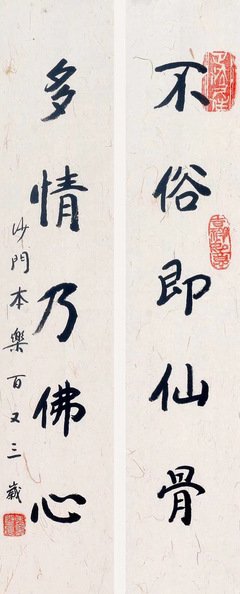 不俗即仙骨
多情乃佛心
沙門本樂百又三歲